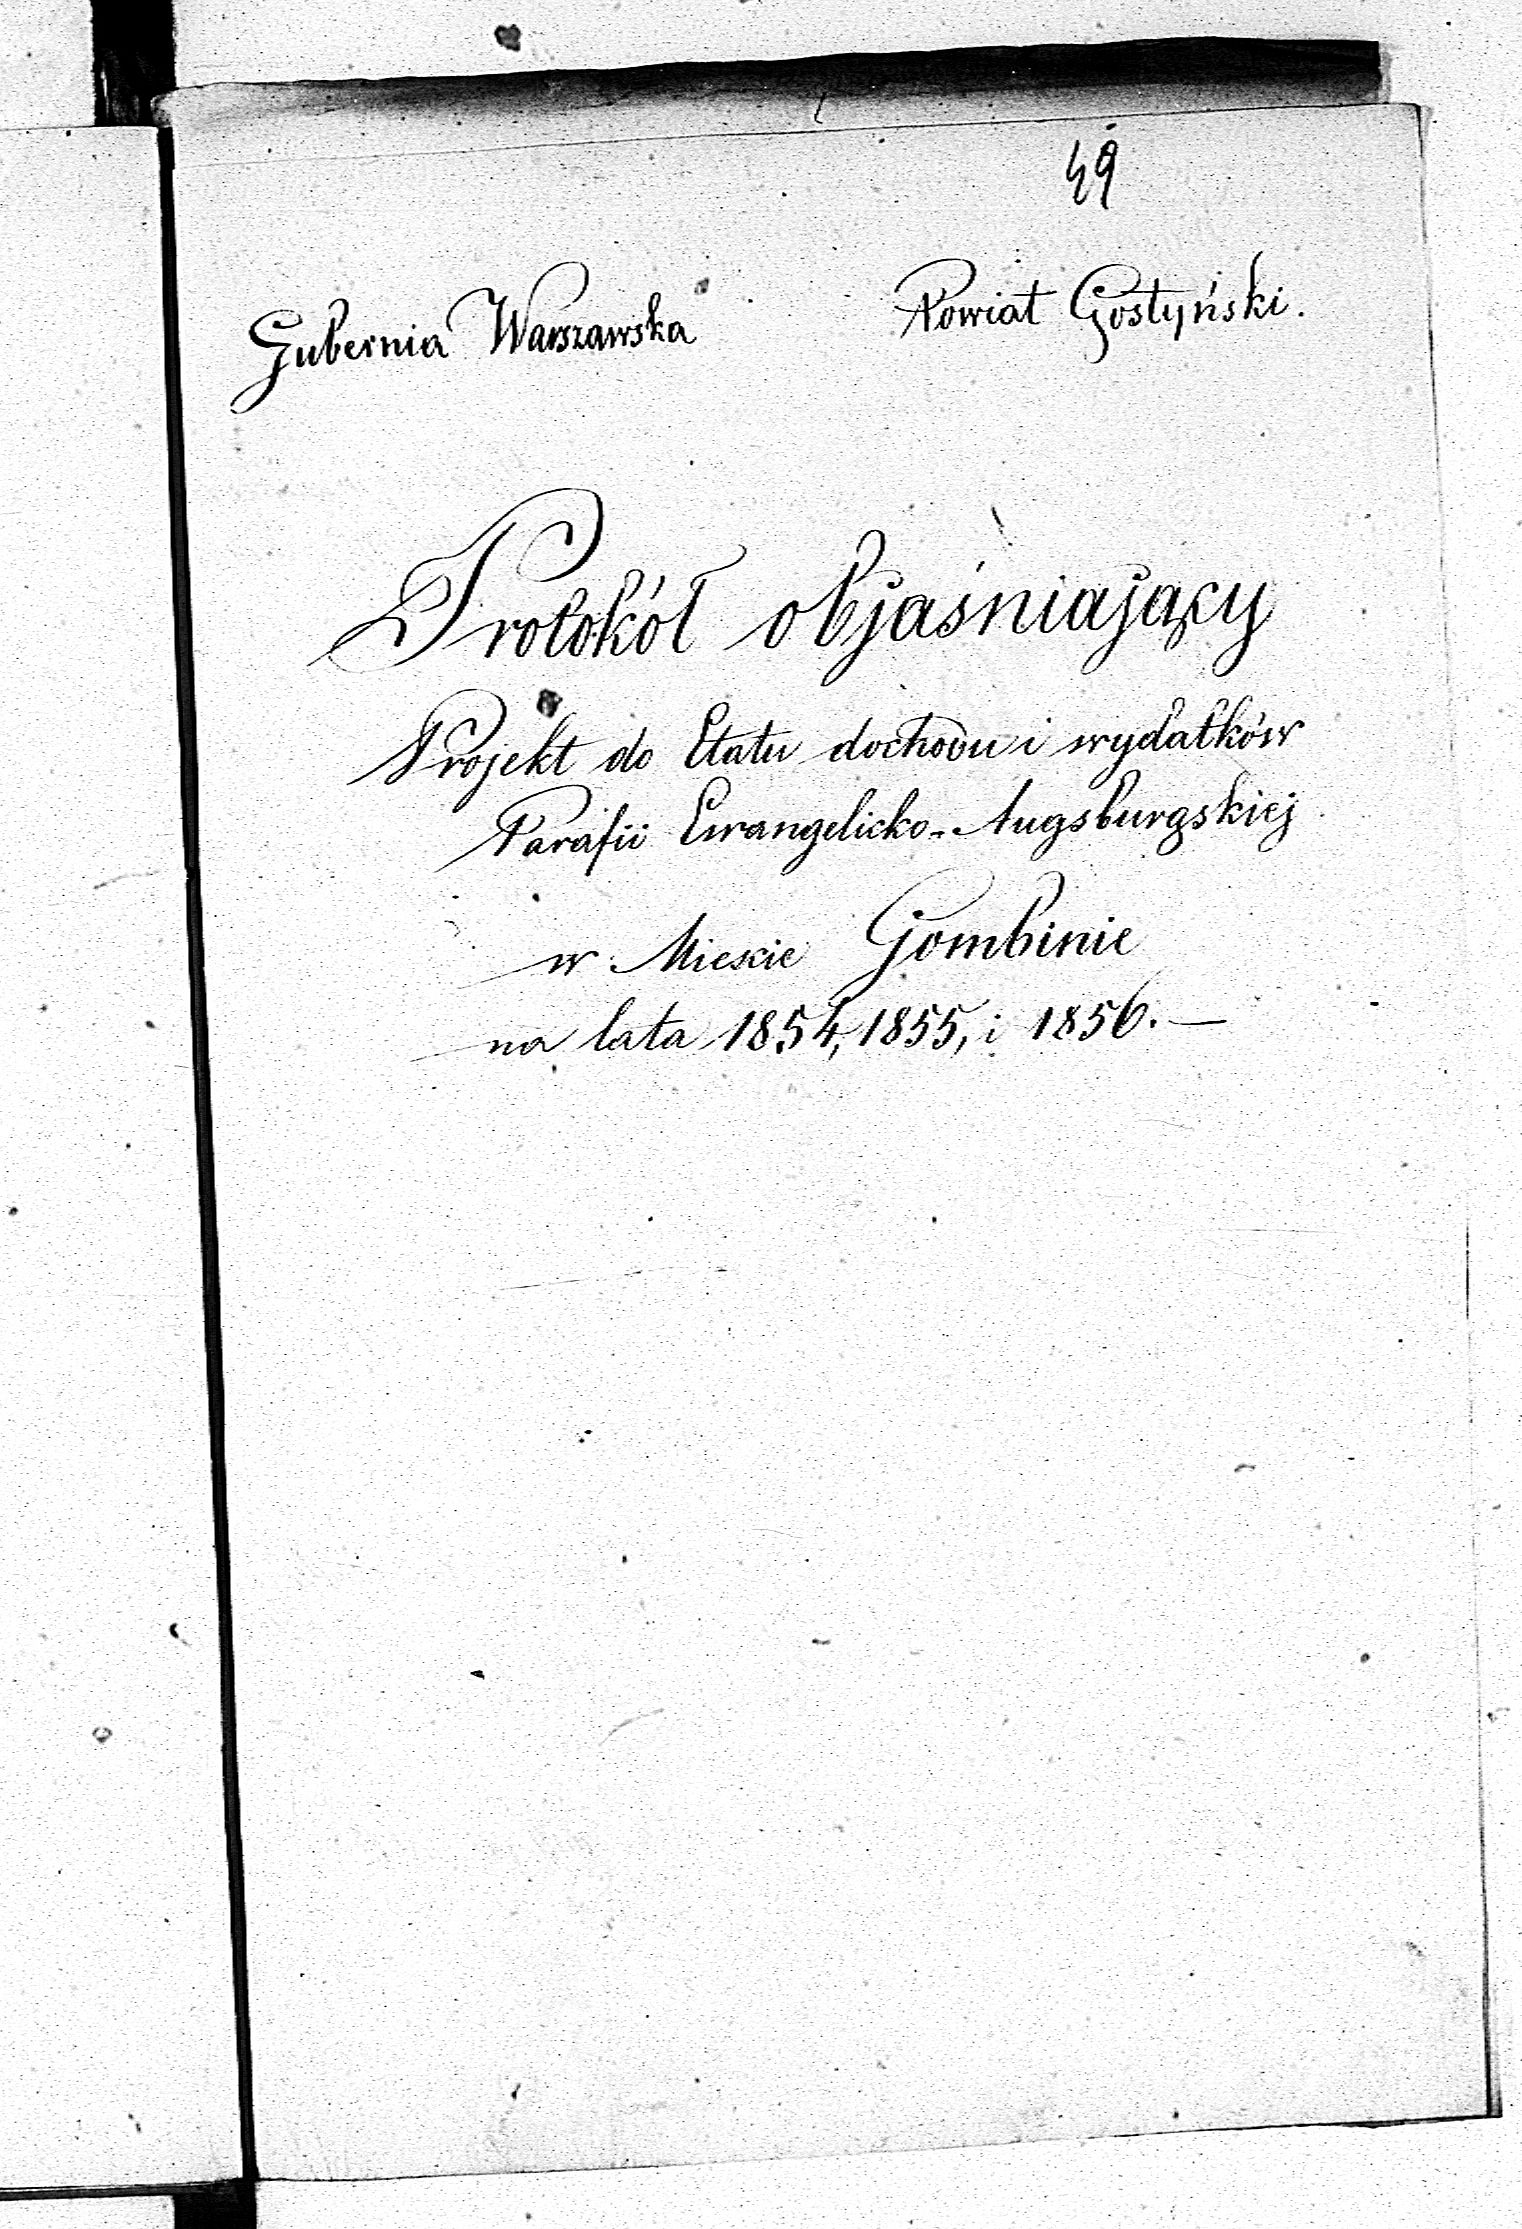 49
Gubernia Warszawska Powiat Gostyński.
Protokół objaśniający
Projekt do Etatu dochodu i wydatków
Parafii Ewangelicko-Augsburgskiej
w Mieście Gombinie
na lata 1854, 1855, i 1856. —